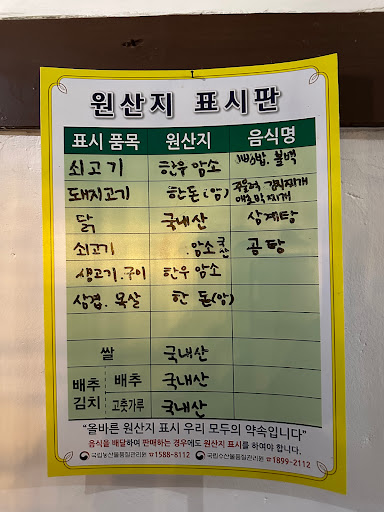 원산지 표시판
표시 품목 원산지 음식명
쇠고기 한우 암소 비빔밥. 불백
돼지고기 한돈(암) 주물럭, 김치찌개
애호박찌개
닭 국내산 삼계탕
쇠고기 .암소 곰탕
생고기.구이 한우 암소
삼겹. 목살 한돈(암)
쌀 국내산
배추김치 배추 국내산
고춧가루 국내산
"올바른 원산지 표시 우리 모두의 약속입니다"
음식을 배달하여 판매하는 경우에도 원산지 표시를 하여야 합니다.
국립농산물품질관리원 ☎1588-8112 국립수산물품질관리원 ☎1899-2112